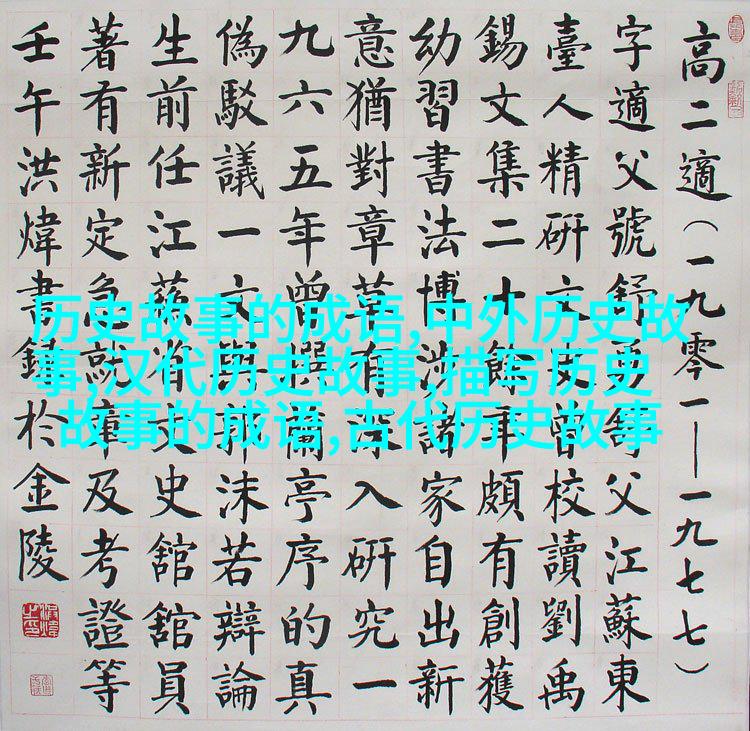 高二適（一九零一—一九七七）
字適父號舒父江蘇東
臺人精研文史曾校讀劉禹
錫文集二十餘年頗有創獲
幼習書法博涉諸家自出新
意猶對章草有深入研究一
九六五年曾撰蘭亭序的真
偽駁議一文與郭沫若辯論
生前任江蘇省文史舘舘員
著有新定急就章及考證等
壬午洪煒書錄於金陵
历史故事的成语,中外历史故
事,汉代历史故事,描写历史
故事的成语,古代历史故事